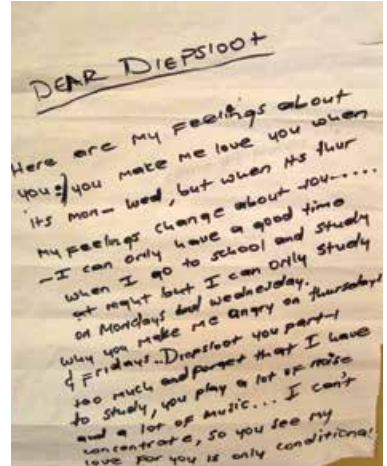 DEAR DIEPSLOOT
Here are my feelings about
you:) you make me love you when
its mon- wed, but when its thur
my feelings change about you.....
- I can only have a good time
when I go to school and study
at night but I can only study
on Mondays and wednesday.
why you make me angry on thursdays
& Fridays.. Diepsloot you party
too much and forget that I have
to study, you play a lot of noise
and a lot of music... I can't
concentrate, so you see my
love for you is only conditional